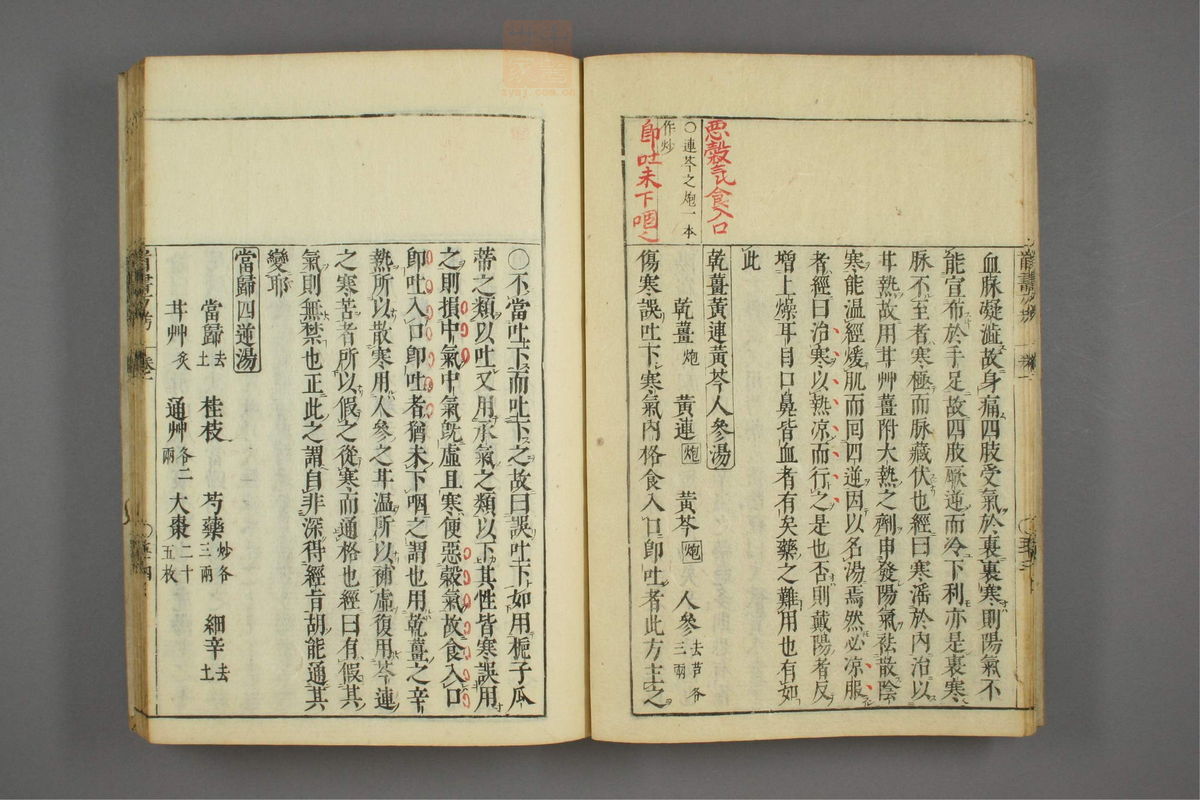 惡穀氣食入口
即吐未下咽之
○連芩之炮一本
作炒
血脉凝澁故身痛四肢受氣於裏裏寒則陽氣不
能宣布於手足故四肢厥逆而冷下利亦是裏寒
脉不至者寒極而脉藏伏也經曰寒淫於內治以
甘熱故用甘艸薑附大熱之劑申發陽氣祛散陰
寒能温經煖肌而回四逆因以名湯焉然必凉服
者經曰治寒以熱凉而行之是也否則戴陽者反
增上燥耳目口鼻皆血者有矣藥之難用也有如
此
乾薑黃連黃芩人參湯
乾薑炮 黃連炮 黃芩炮 人參去芦各三兩
傷寒誤吐下寒氣內格食入口卽吐者此方主之
○不當吐下而吐下之故曰誤吐下如用梔子瓜
蒂之類以吐又用承氣之類以下其性皆寒誤用
之則損中氣中氣旣虛且寒便惡穀氣故食入口
卽吐入口卽吐者猶未下咽之謂也用乾薑之辛
熱所以散寒用人參之甘温所以補虛復用芩連
之寒苦者所以假之從寒而通格也經曰有假其
氣則無禁也正此之謂自非深得經旨胡能通其
變耶
當歸四逆湯
當歸去土 桂枝 芍藥炒各三兩 細辛去土
甘艸炙 通艸各二兩 大棗二十五枚